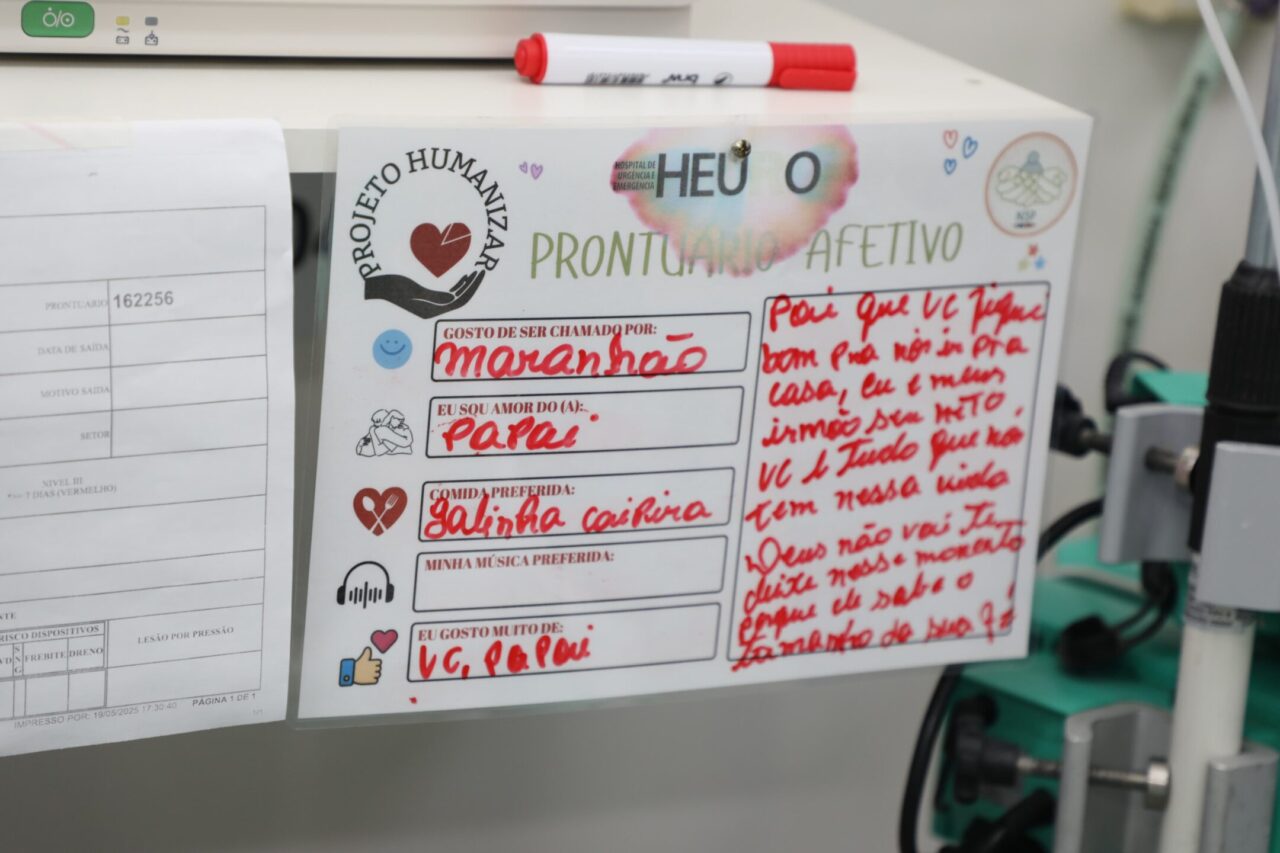 PRONTUÁRIO 162256
DATA DE SAÍDA
MOTIVO SAÍDA
SETOR
NIVEL III
1 DIAS (VERMELHO)
RISCO DISPOSITIVOS
LESÃO POR PRESSÃO
SNG FREBITE DRENO
PÁGINA 1 DE 1
IMPRESSO POR: 19/05/2025 17:30:40
brw
PROJETO HUMANIZAR
HOSPITAL DE
URGÊNCIA E
EMERGÊNCIA
HEU O
NSP
PRONTUÁRIO AFETIVO
GOSTO DE SER CHAMADO POR:
maranhão
EU SOU AMOR DO (A):
PAPAi
COMIDA PREFERIDA:
galinha caipira
MINHA MÚSICA PREFERIDA:
EU GOSTO MUITO DE:
VC, PAPAi
Pai que VC fiqui
bom pra nós ir pra
casa, Eu e meus
irmão seu neto,
VC é Tudo que nós
tem nessa vida
Deus não vai Te
deixe nesse momento
porque ele sabe o
tamanho da sua fé!